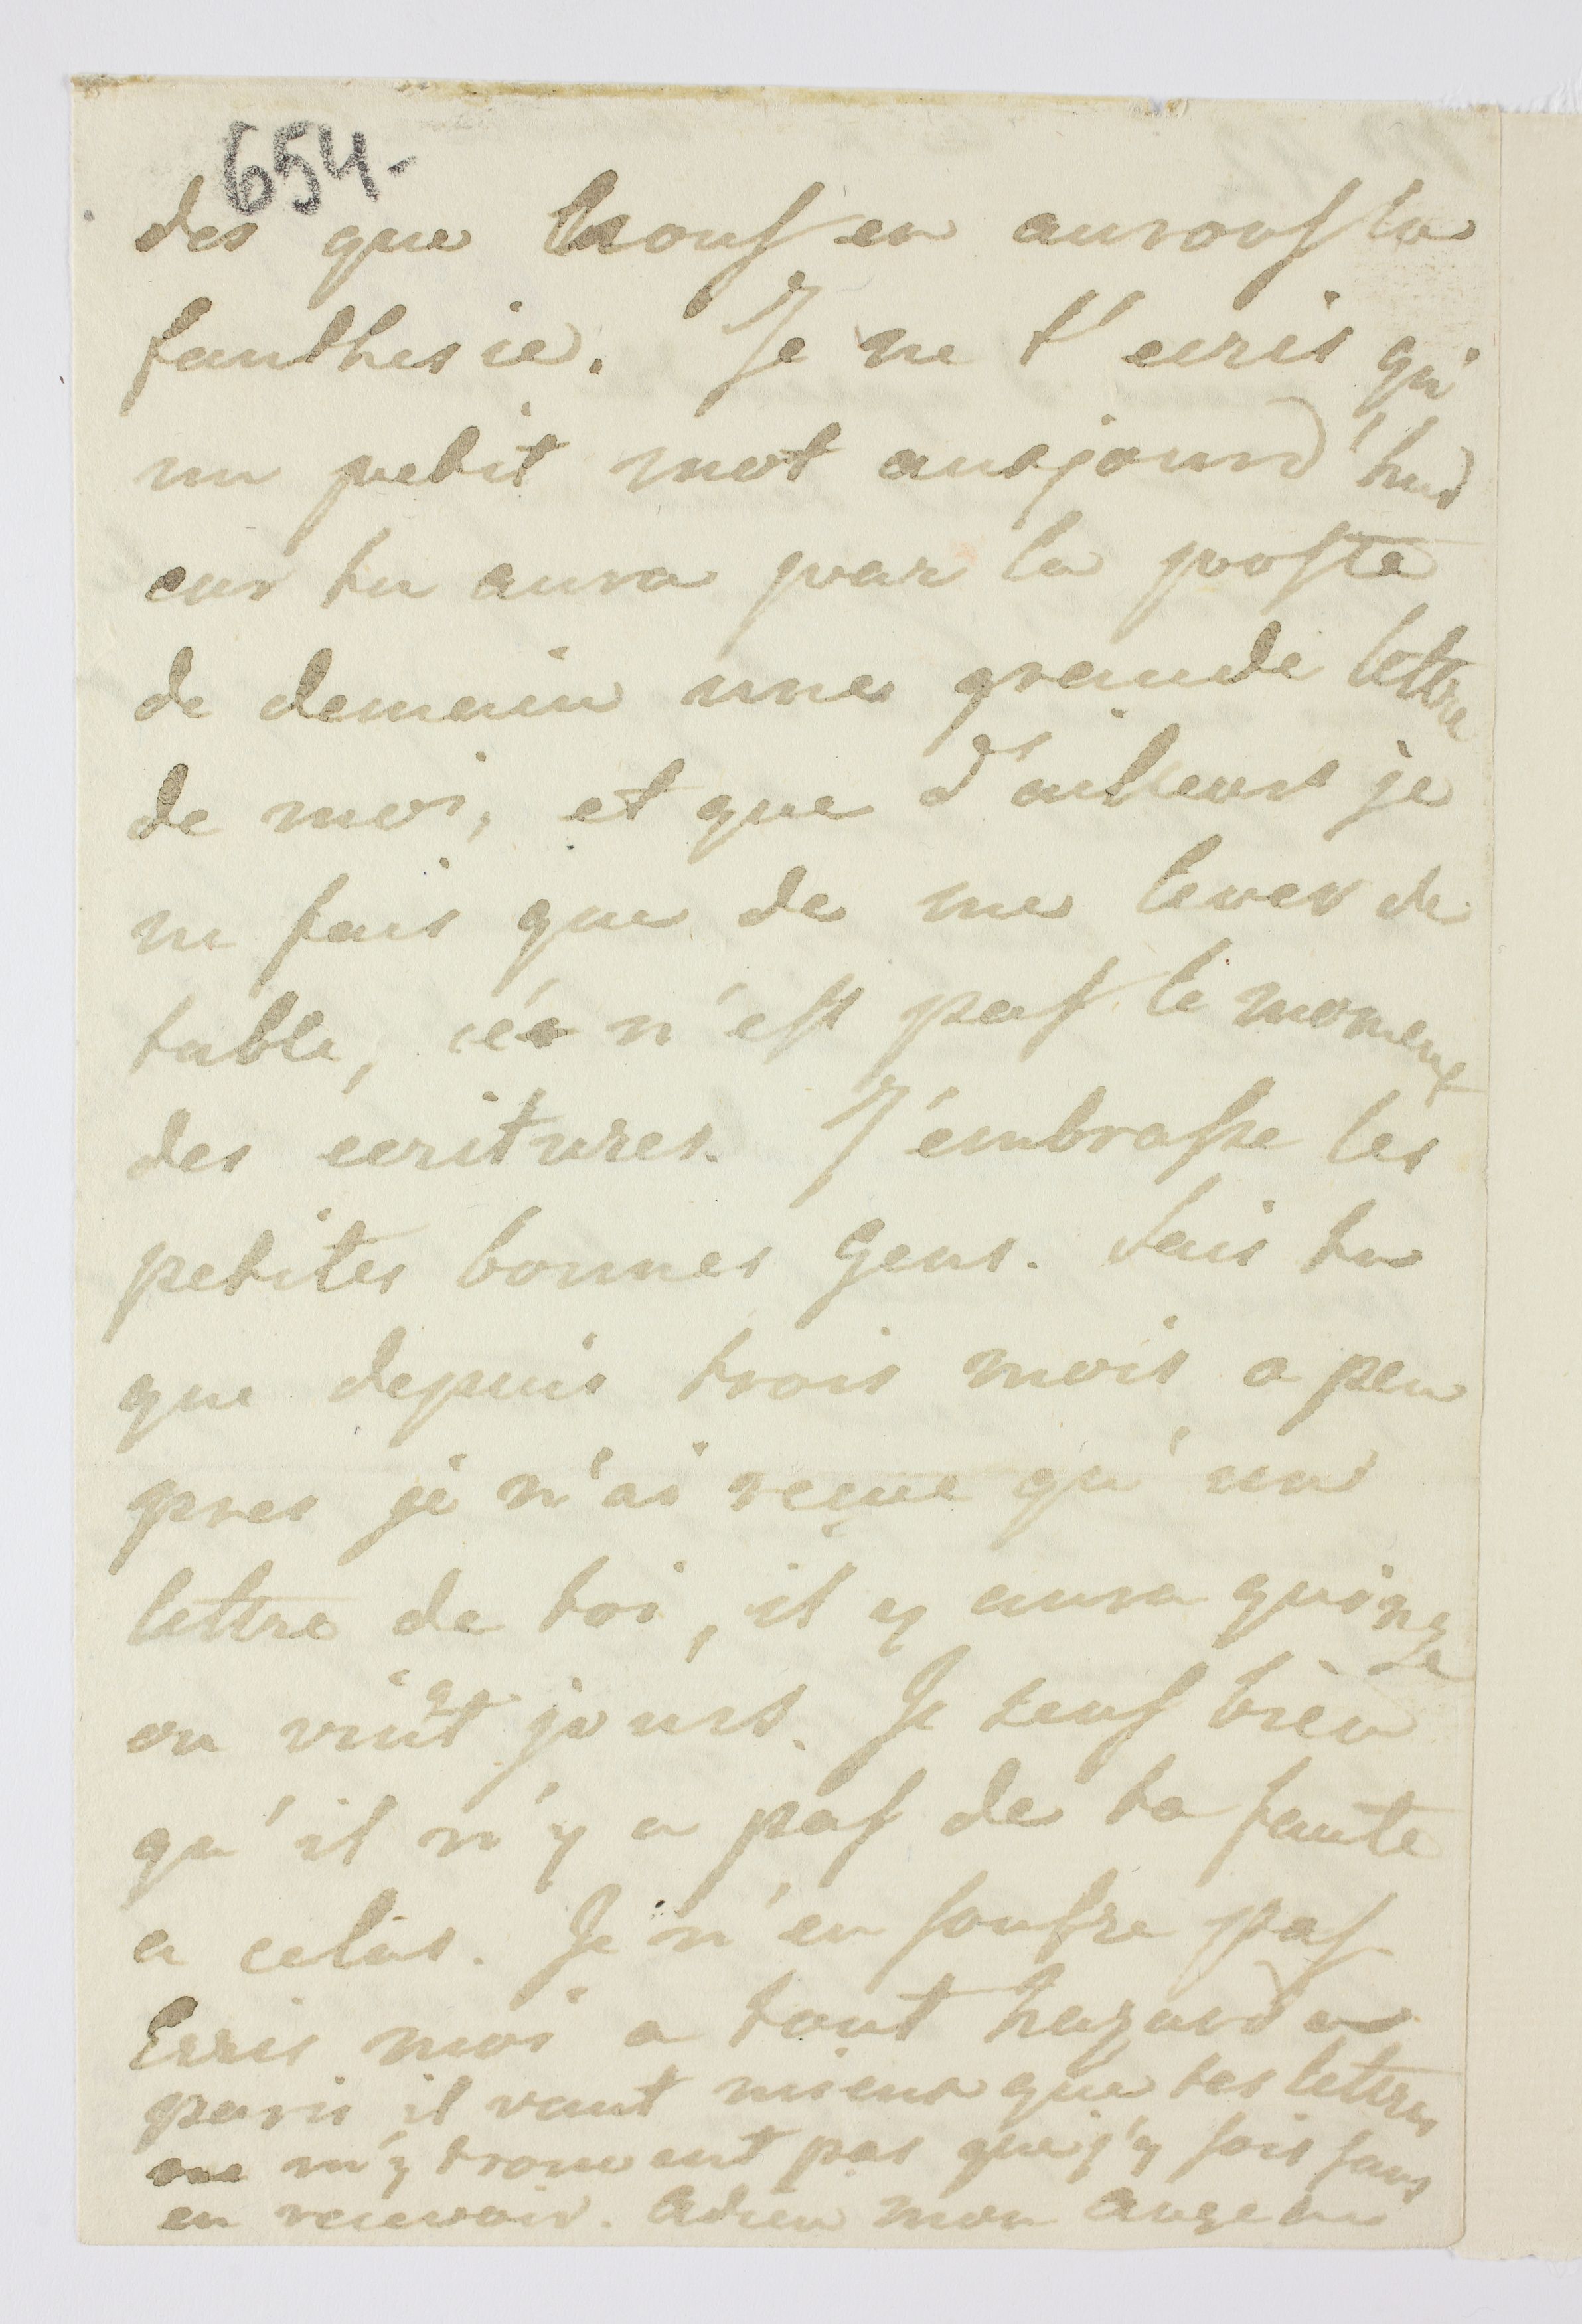 654-
des que nous en aurons la
fanthesie. Je ne t'ecris qu'
un petit mot ausjourd'hui
car tu aura par la poste
de demain une grande lettre
de moi, et que d'ailleurs je
ne fais que de me lever de
table, ce n'est pas le moment
des ecritures. J'embrasse les
petites bonnes gens. Sais tu
que depuis trois mois a peu
pres je n'ai reçue qu'un
lettre de toi, il y aura quinze
ou vingt jours. Je sens bien
qu'il n'y a pas de ta faute
a celas. Je n'en soufre pas.
Ecris moi a tout hazard a
paris il vaut mieux que tes lettres
ne m'y trouvent pas que j'y sois sans
en recevoir. Adieu mon ange